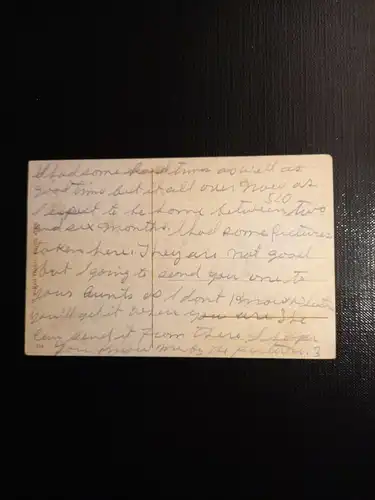 I had some hard time as well as
good time but it all over now as
510
I expect to be home between two
and six months. I had some pictures
taken here. They are not good
but I going to send you one to
your Aunts as I dont know
you'll get it where you are She
can send it from there. I hope
you know me by the picture. 3